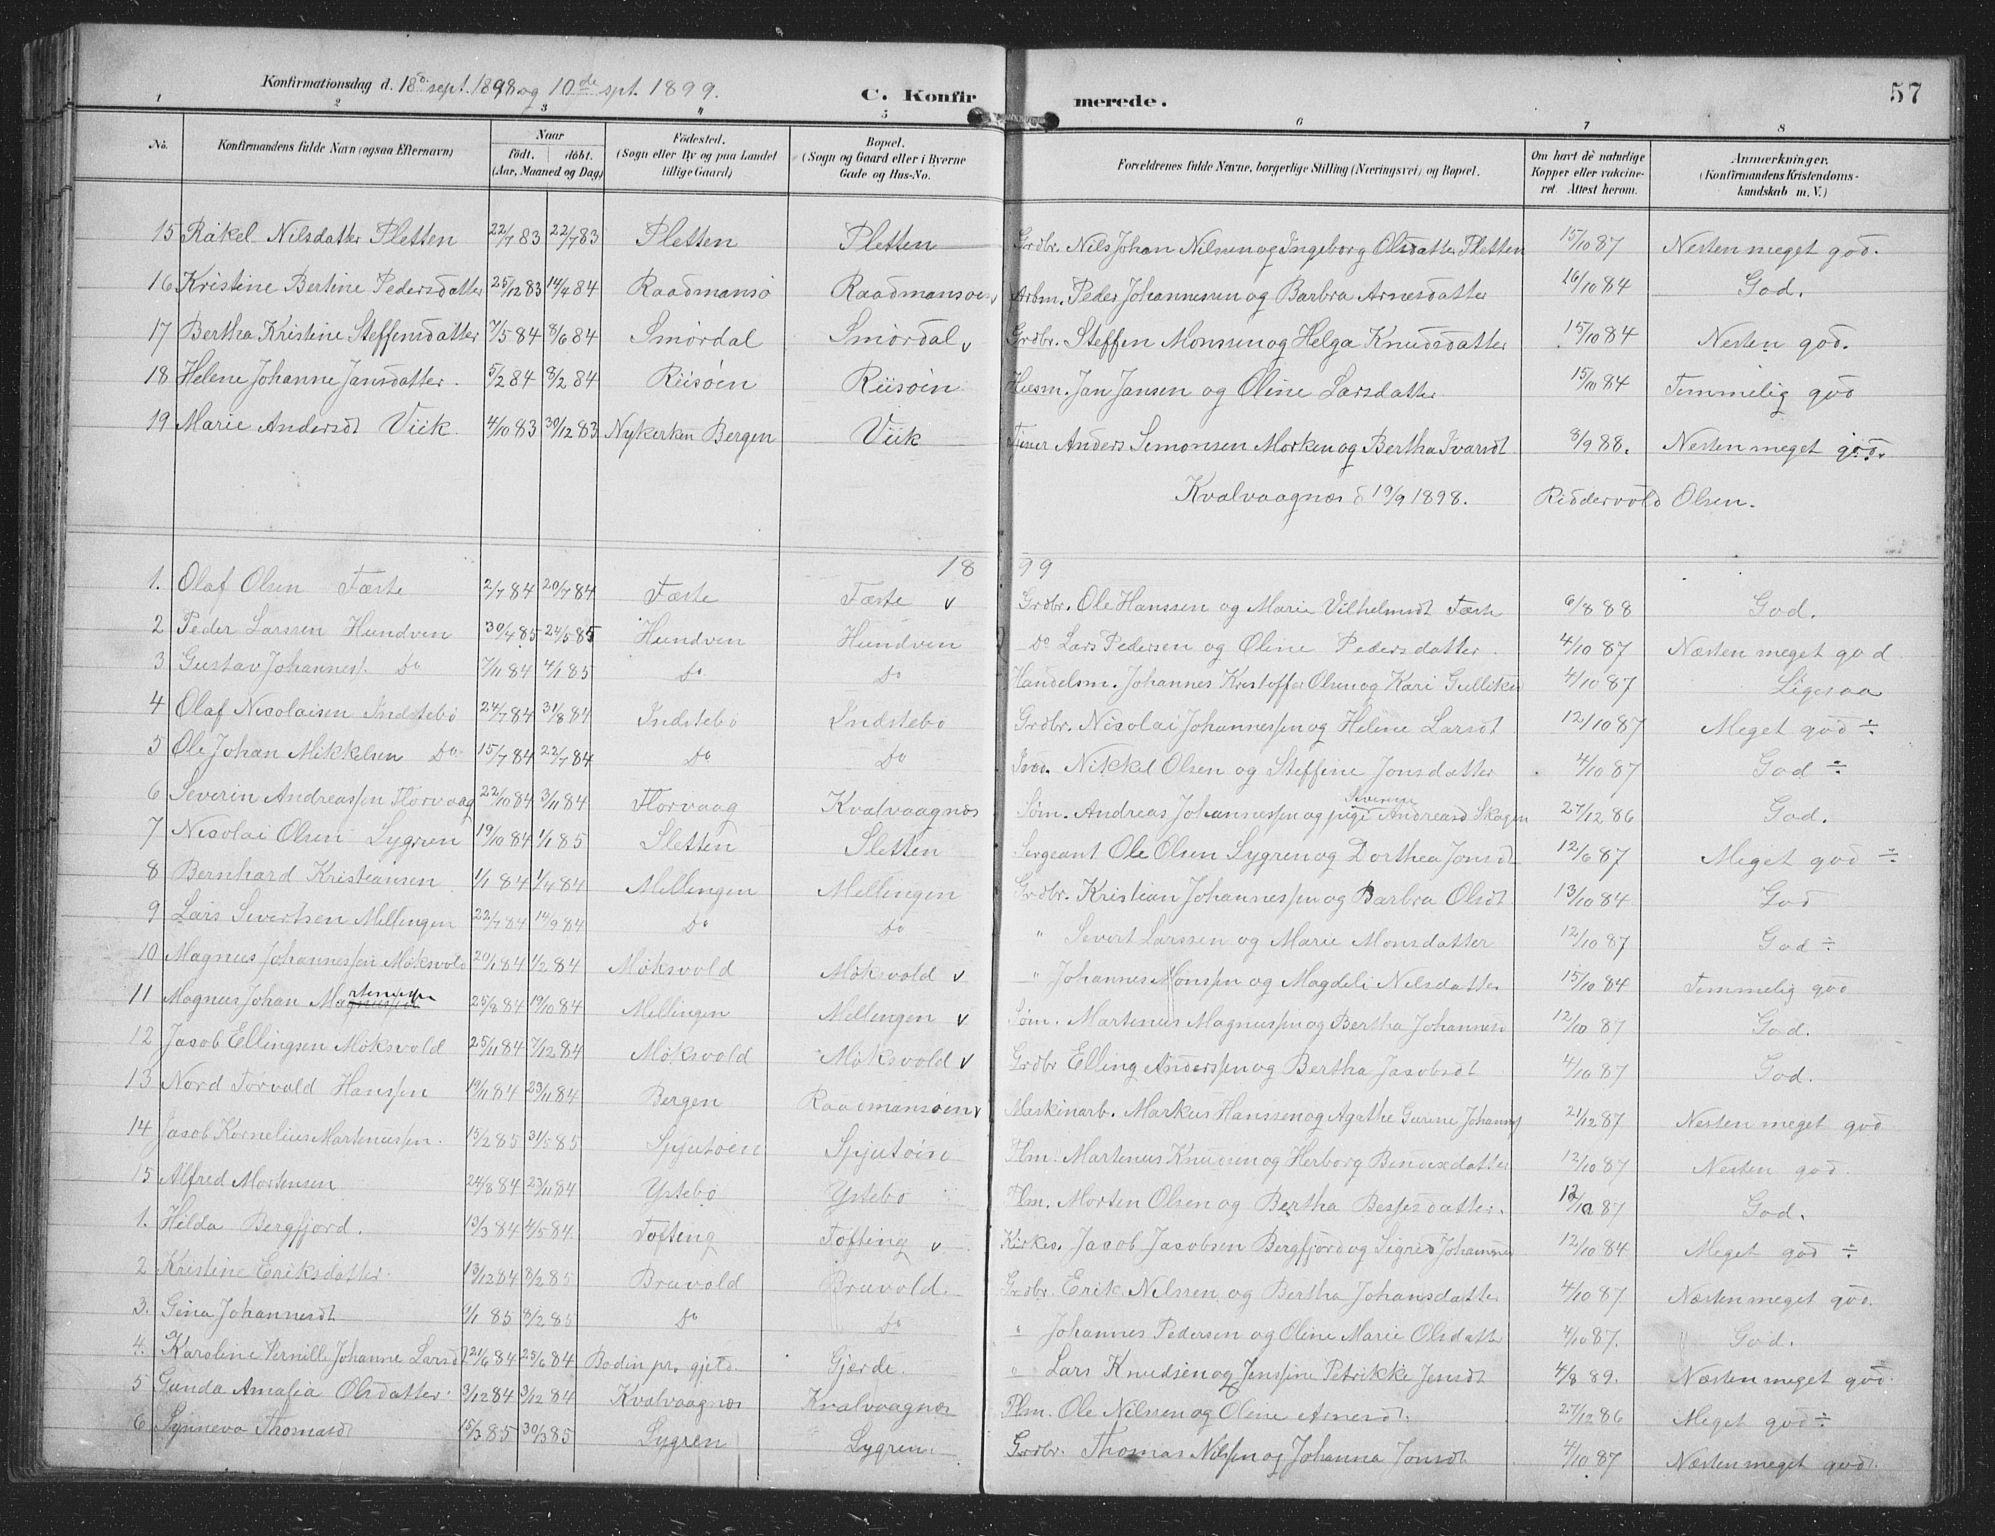 Konfirmationsdag d. 18de sept. 1898 og 10de spt. 1899. C. Konfirmerede. 57
1 2 3 4 5 6 7 8
No. Konfirmandens fulde Navn (ogsaa Efternavn) Naar födt. döbt. (Aar, Maaned og Dag) Födested. (Sogn eller By og paa Landet tillige Gaard) Bopæl. (Sogn og Gaard eller i Byerne Gade og Hus-No. Forældrenes fulde Navne, borgerlige Stilling (Næringsvei) og Bopæl. Om havt de naturlige Kopper eller vakcineret. Attest herom. Anmærkninger. (Konfirmandens Kristendomskundskab m. V.)
15 Rakel Nilsdatter Pletten 22/7 83 22/7 83 Pletten Pletten Grdbr. Nils Johan Nilsen og Ingeborg Olsdatter Pletten 15/10 87 Nesten meget god.
16 Kristine Bertine Pedersdatter 25/12 83 14/4 84 Raadmansö Raadmansöen v Arbm. Peder Johannesen og Barbra Arnesdatter 16/10 84 God.
17 Bertha Kristine Steffensdatter 7/5 84 8/6 84 Smördal Smördal v Grdbr. Steffen Monssen og Helga Knudsdatter 15/10 84 Nesten god.
18 Helene Johanne Jansdatter. 5/2 84 8/2 84 Riisöen Riisöen Husm. Jan Jansen og Oline Larsdatter 15/10 84 Temmelig god
19 Marie Andersdt Viik 4/10 83 30/12 83 Nykerken Bergen Viik Anders Simonsen Morken og Bertha Ivarsdt 8/9 88. Nesten meget god.
Kvalvaagnæs d 19/9 1898. Riddervold Olsen.
1899
1. Olaf Olsen Fæste 2/7 84 20/7 84 Fæste Fæste v Grdbr. Ole Hanssen og Marie Vilhelmsdt Fæste 6/8 88 God.
2 Peder Larssen Hundven 30/4 85 24/5 85 Hundven Hundven Do Lars Pedersen og Oline Pedersdatter. 4/10 87 Næsten meget god
3 Gustav Johannest. Do 7/11 84 4/1 85 Do Do Handelsm. Johannes Kristoffer Olsen og Kari Gulliksd 4/10 87 Ligesaa
4 Olaf Nicolaisen Indstebö 24/7 84 31/8 84 Indstebö Indstebö Grdbr. Nicolai Johannessen og Helene Larsdt 12/10 87 Meget god ÷
5 Ole Johan Mikkelsen Do 15/7 84 22/7 84 Do Do Mikkel Olsen og Steffine Jonsdatter 4/10 87 God ÷
6 Severin Andreassen Florvaag 22/10 84 3/11 84 Florvaag Kvalvaagnæs Søm. Andreas Johannessen og pige Severine Andreasd Skagen 27/12 86 God.
7 Nicolai Olsen Lygren 19/10 84 1/1 85 Sletten Sletten Sergeant Ole Olsen Lygren og Dorthea Jonsdt 12/6 87 Meget god ÷
8 Bernhard Kristiansen 1/1 84 1/4 84 Mellingen Mellingen Grdbr. Kristian Johannessen og Barbra Olsdt 13/10 84 God
9 Lars Severtsen Mellingen 22/7 84 14/9 84 Do Do " Severt Larssen og Marie Monsdatter 12/10 87 God ÷
10 Magnus Johannessen Møksvold 20/1 84 1/2 84 Møksvold Møksvold v " Johannes Monsen og Magdeli Nilsdatter 15/10 84 Temmelig god
11 Magnus Johan Martenussen 25/8 84 19/10 84 Mellingen Mellengen v Søm. Martenus Magnussen og Bertha Johannesd 12/10 87 God.
12 Jacob Ellingsen Møksvold 25/11 84 7/12 84 Møksvold Møksvold v Grdbr Elling Anderssen og Bertha Jacobsdt 4/10 87 God.
13 Nord Torvald Hanssen 19/11 84 23/11 84 Bergen Raadmansöen v Maskinarb. Markus Hanssen og Agathe Gurine Johannes 21/12 87 Nesten meget god
14 Jacob Kornelius Martenussen. 15/2 85 31/5 85 Spjutöen Spjutöin Plm. Martenus Knudsen og Herborg Bendixdatter 12/10 87 Nesten god.
15 Alfred Mortensen 24/8 84 23/11 84 Ystebö Ystebö Plm. Morten Olsen og Bertha Bessesdatter. 12/10 87 God.
1. Hilda Bergfjord. 13/3 84 4/5 84. Tofting Tofting v Kirkes. Jacob Jacobsen Bergfjord og Sigrid Johannes 12/10 84 Meget god ÷
2 Kristine Eriksdatter. 13/12 84 8/2 85 Bruvold Bruvold. Grdbr Erik Nilssen og Bertha Johansdatter 4/10 87. Næsten meget god.
3. Gina Johannesdt 1/1 85 8/2 85 Do Do " Johannes Pedersen og Oline Marie Olsdatter 4/10 87. God.
4. Karoline Pernille Johanne Larsdt 21/6 84 25/6 84 Bodin pr. gjeld Gjerde. " Lars Knudsen og Jensine Petrikke Jensdt 4/8 89. Næsten meget god.
5 Gunda Amalia Olsdatter. 3/12 84 3/12 84 Kvalvaagnæs Kvalvaagnæs Plm. Ole Nilssen og Oline Arnesdt. 27/12 86 Meget god ÷
6 Synneva Thomasd 15/3 85 30/3 85 Lygren Lygren. Grdbr. Thomas Nilssen og Johanna Jonsdt 4/10 87 Næsten meget god.